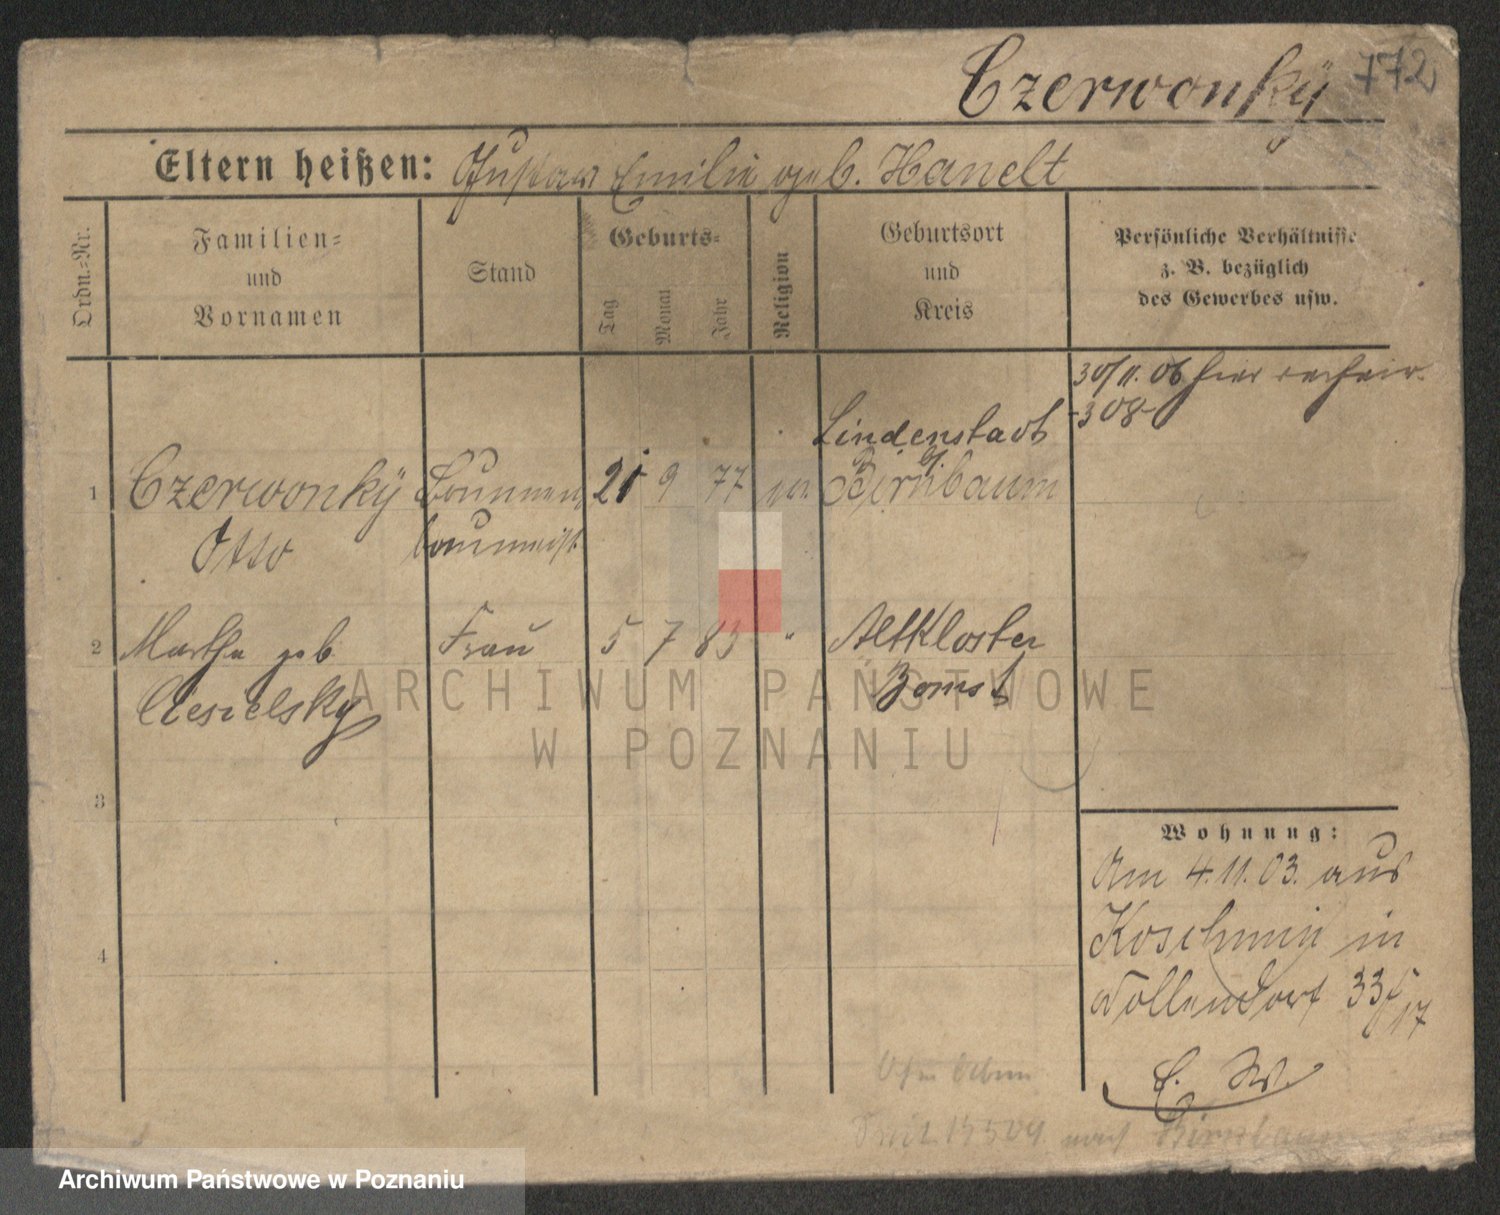 Czerwonky 772
Eltern heißen: Gustav Emilie geb. Hanelt
Ordn.-Nr.
Familien-
und
Vornamen
Stand
Geburts-
Tag
Monat
Jahr
Religion
Geburtsort
und
Kreis
Persönliche Verhältnisse
z. B. bezüglich
des Gewerbes usw.
30/11. 06 hier
308
Lindenstadt
1 Czerwonky Brunnen 21 9 77 ev. Birnbaum
Otto baumeist.
2 Martha geb Frau 5 7 83 " Altkloster
Ciesielsky Bomst
ARCHIWUM PAŃSTWOWE
W POZNANIU
3
Wohnung:
Am 4.11.03. aus
Koschmin in
4
Nollendorf 33
17
E. W.
nach Birnbaum
Archiwum Państwowe w Poznaniu